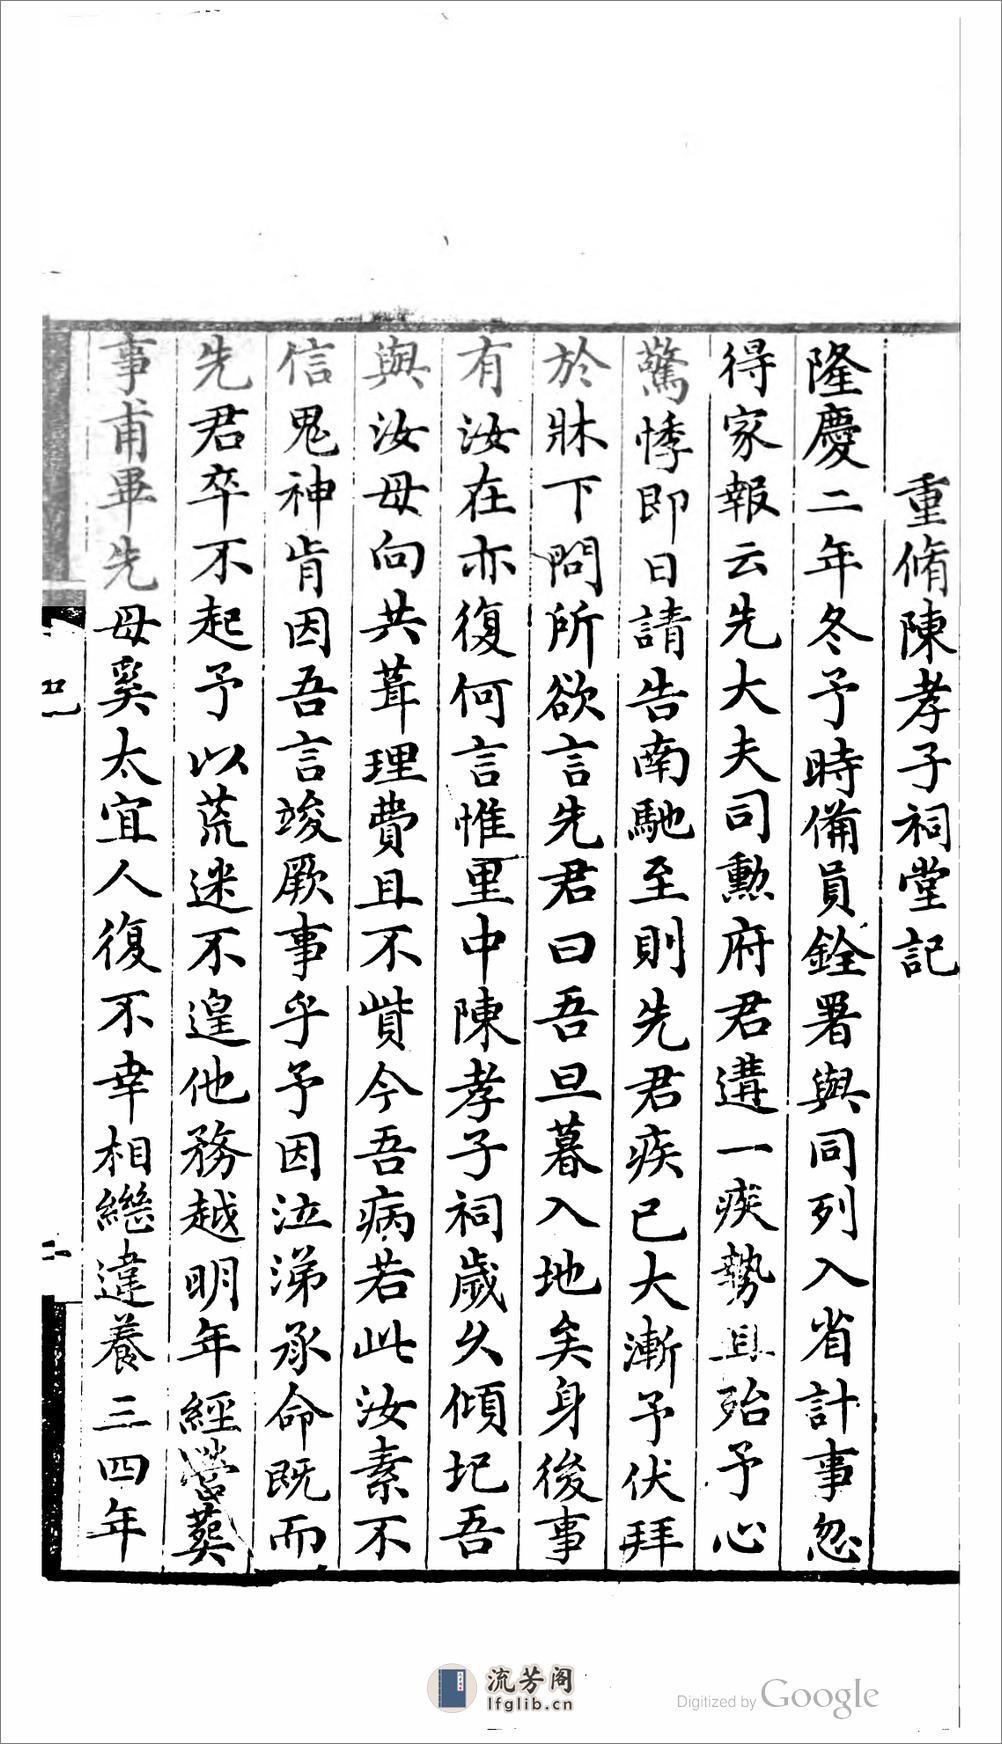 重脩陳孝子祠堂記
隆慶二年冬予時備員銓署與同列入省計事忽
得家報云先大夫司勲府君遘一疾勢且殆予心
驚悸即日請告南馳至則先君疾已大漸予伏拜
於牀下問所欲言先君曰吾旦暮入地矣身後事
有汝在亦復何言惟里中陳孝子祠歲久傾圮吾
與汝母向共葺理費且不貲今吾病若此汝素不
信鬼神肯因吾言竣厥事乎予因泣涕承命既而
先君卒不起予以荒迷不遑他務越明年經營葬
事甫畢先母奚太宜人復不幸相繼違養三四年
二
流芳阁
lfglib.cn
Digitized by Google